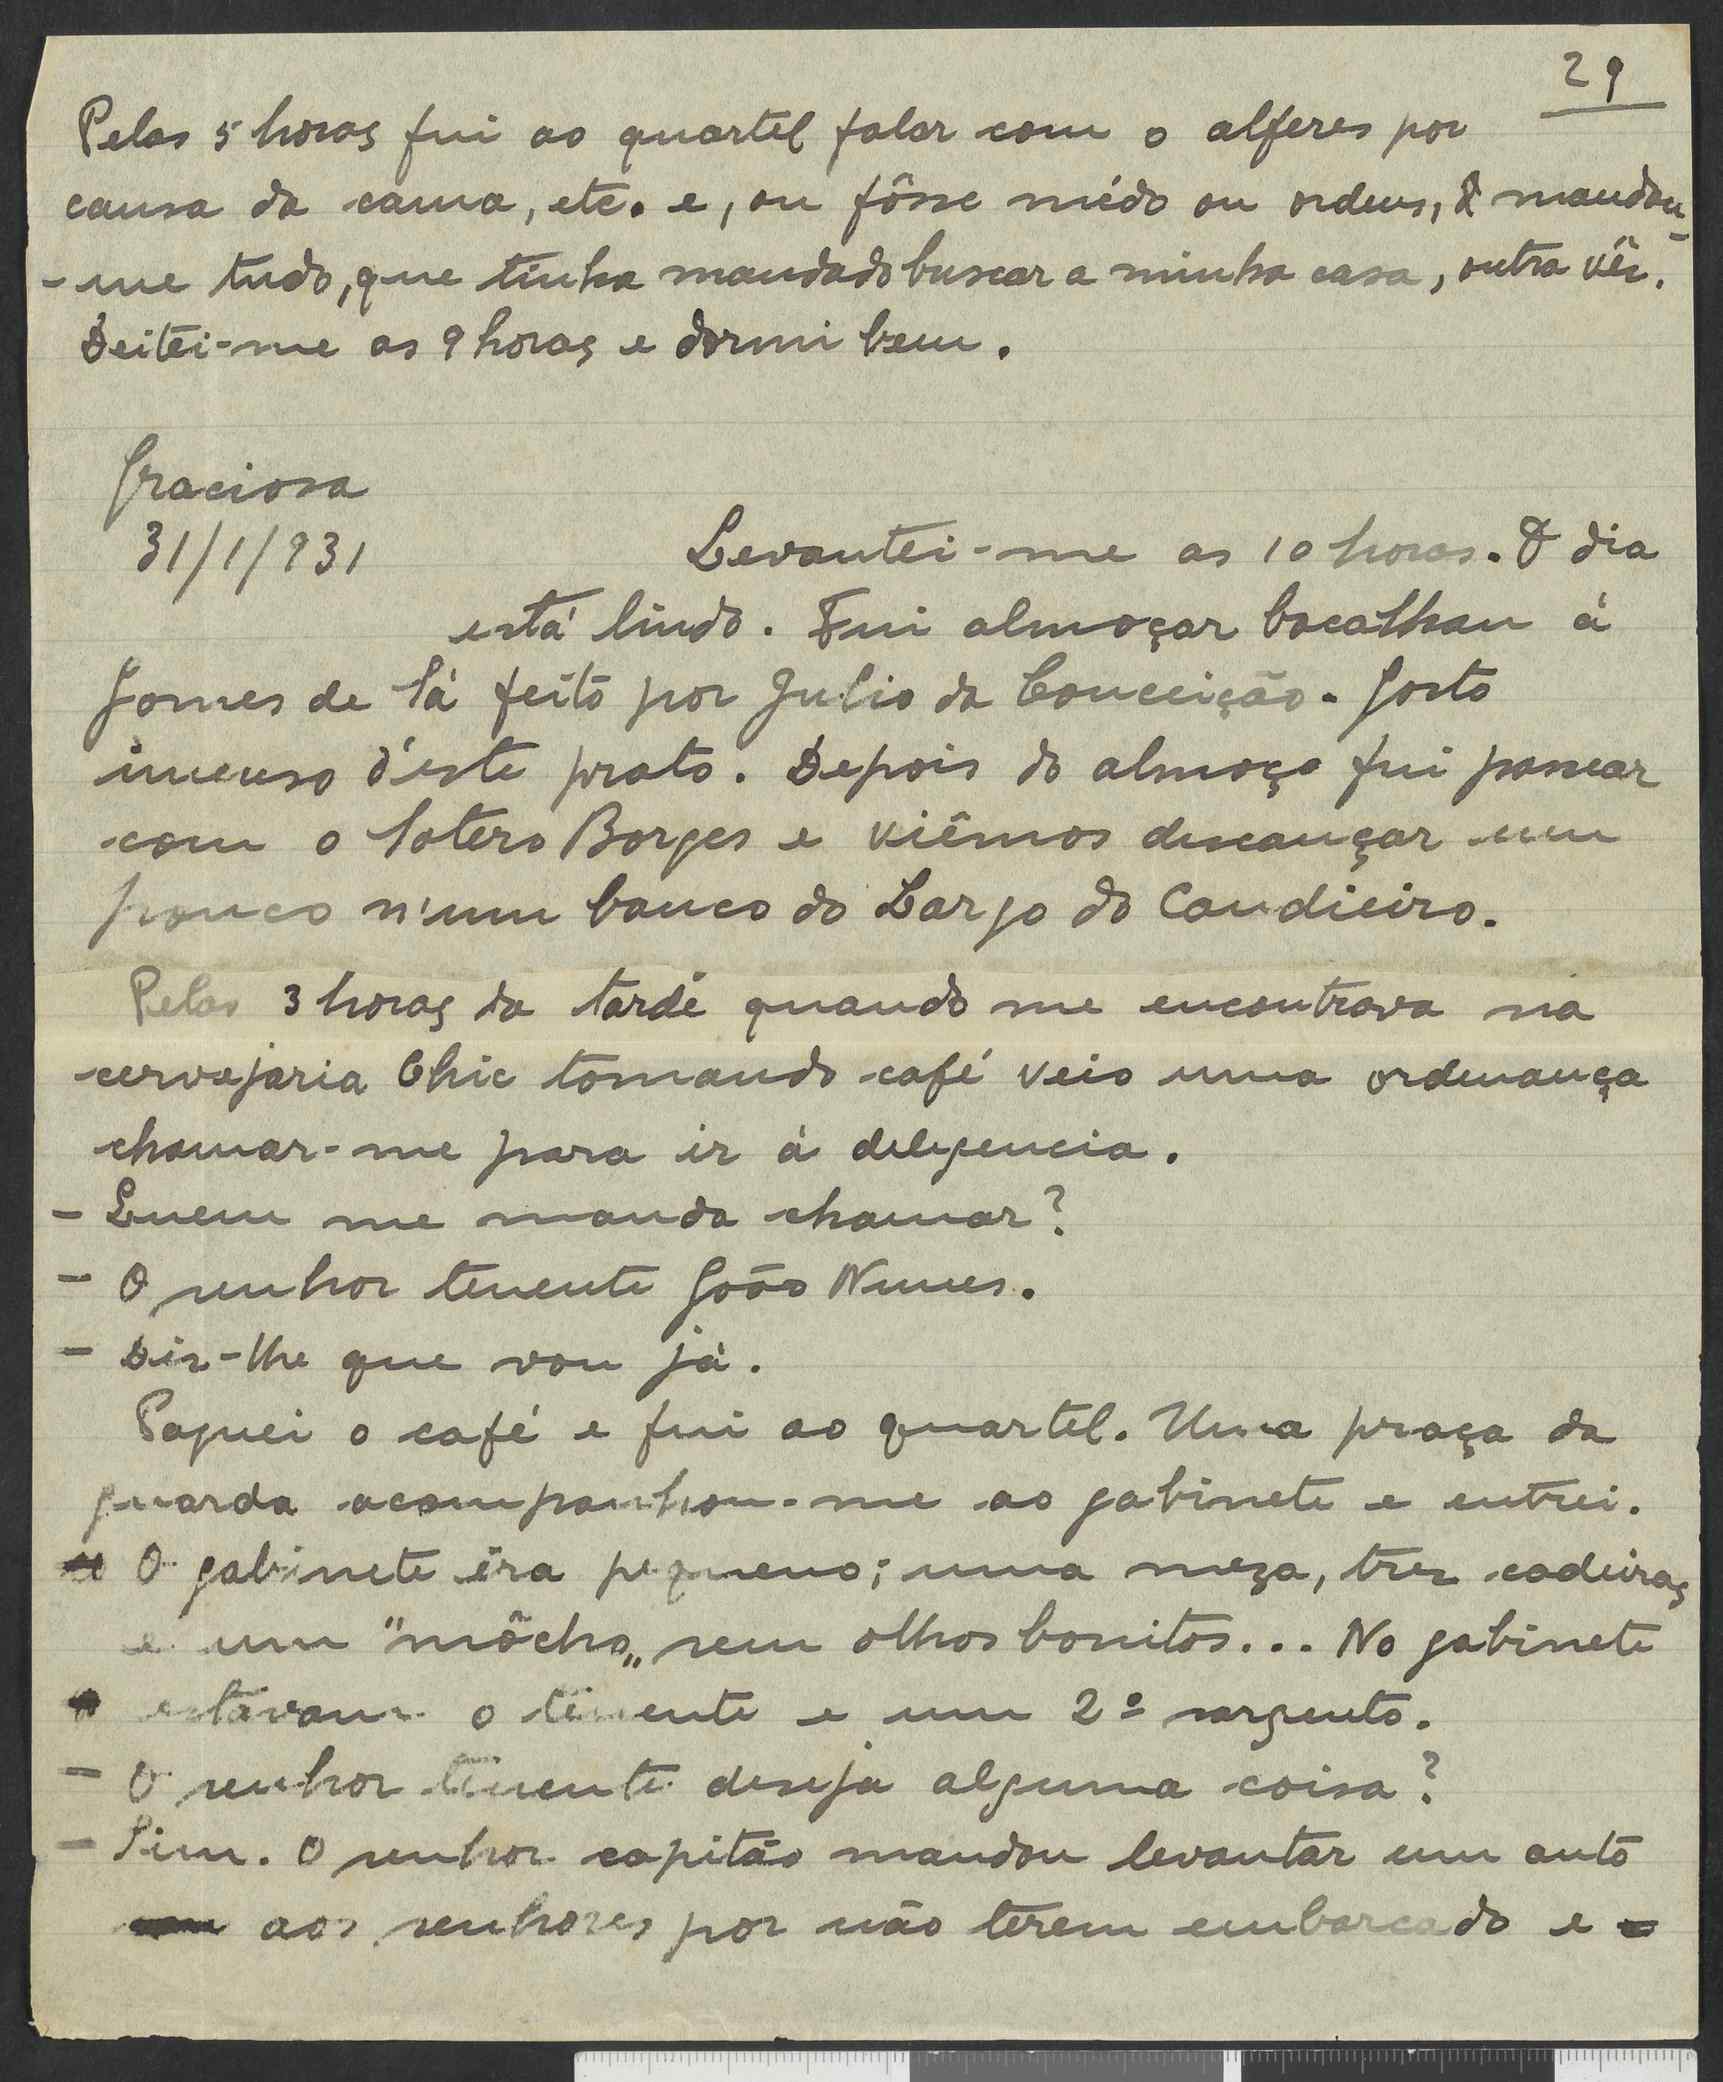 29
Pelas 5 horas fui ao quartel falar com o alferes por
causa da cama, etc. e, ou fôsse mêdo ou ordens, mandou-
-me tudo, que tinha mandado buscar a minha casa, outra vêz.
Deitei-me as 9 horas e dormi bem.
Graciosa
31/1/931
Levantei-me as 10 horas. O dia
está lindo. Fui almoçar bacalhau á
Gomes de Sá feito por Julio da Conceição. Gosto
imenso d'este prato. Depois do almoço fui passear
com o Sotero Borges e viêmos descançar um
pouco n'um banco do Largo do Candieiro.
Pelas 3 horas da tarde quando me encontrava na
cervejaria Chic tomando café veio uma ordenança
chamar-me para ir á delegencia.
- Quem me manda chamar?
- O senhor tenente João Nunes.
- Diz-lhe que vou já.
Paguei o café e fui ao quartel. Uma praça da
guarda acompanhou-me ao gabinete e entrei.
O gabinete éra pequeno; uma meza, trez cadeiras
e um "môcho„ sem olhos bonitos... No gabinete
estavam o tenente e um 2º sargento.
- O senhor tenente deseja alguma coisa?
- Sim. O senhor capitão mandou levantar um auto
aos senhores por não terem embarcado e